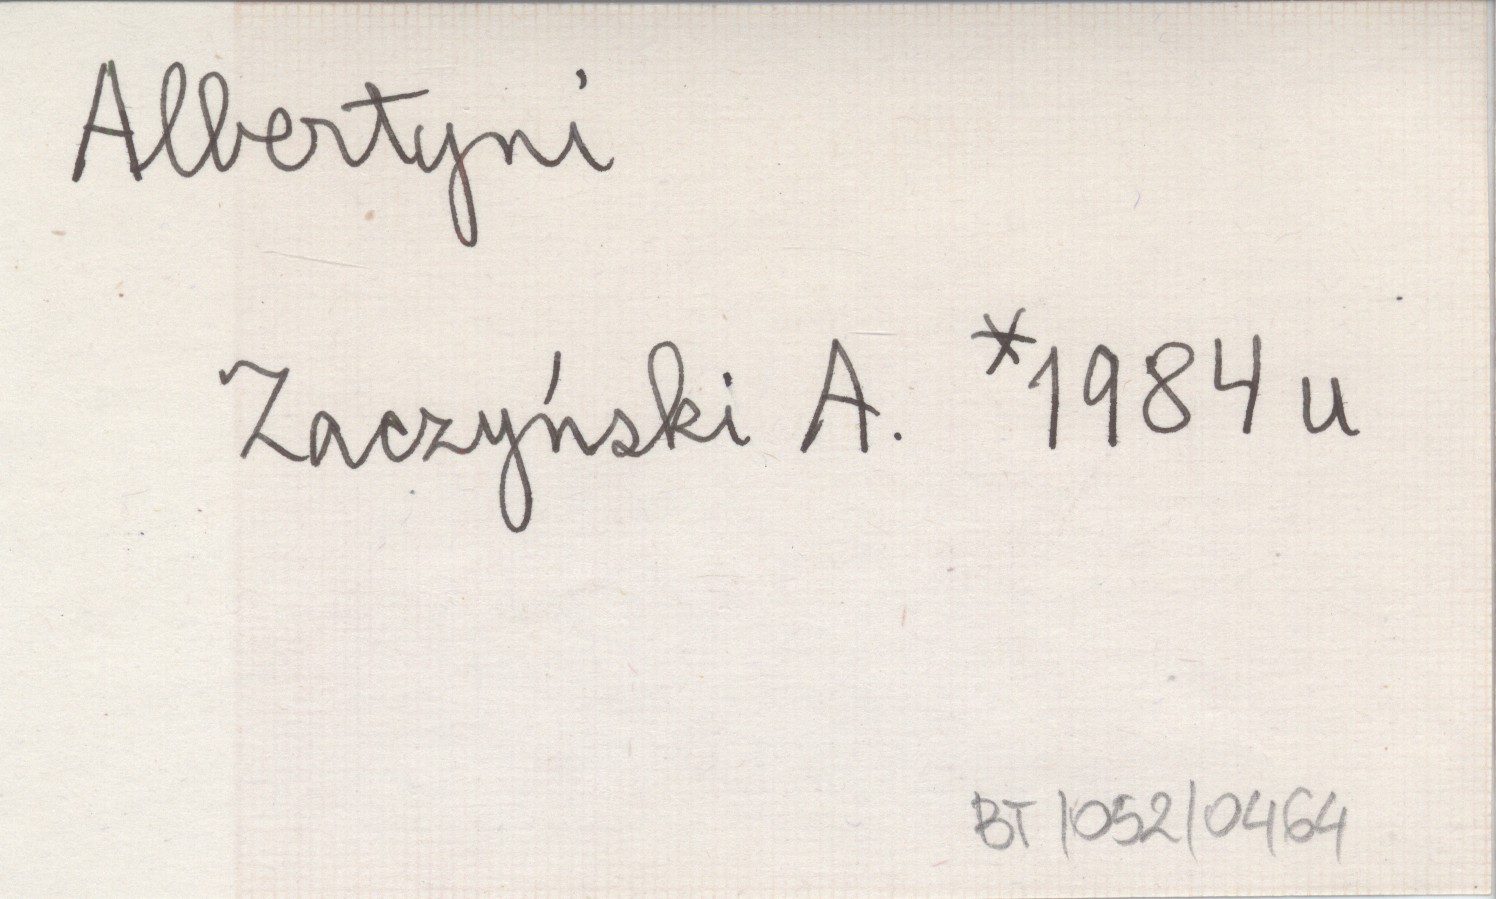 Albertyni
Zaczyński A. *1984 u
BT/052/0464